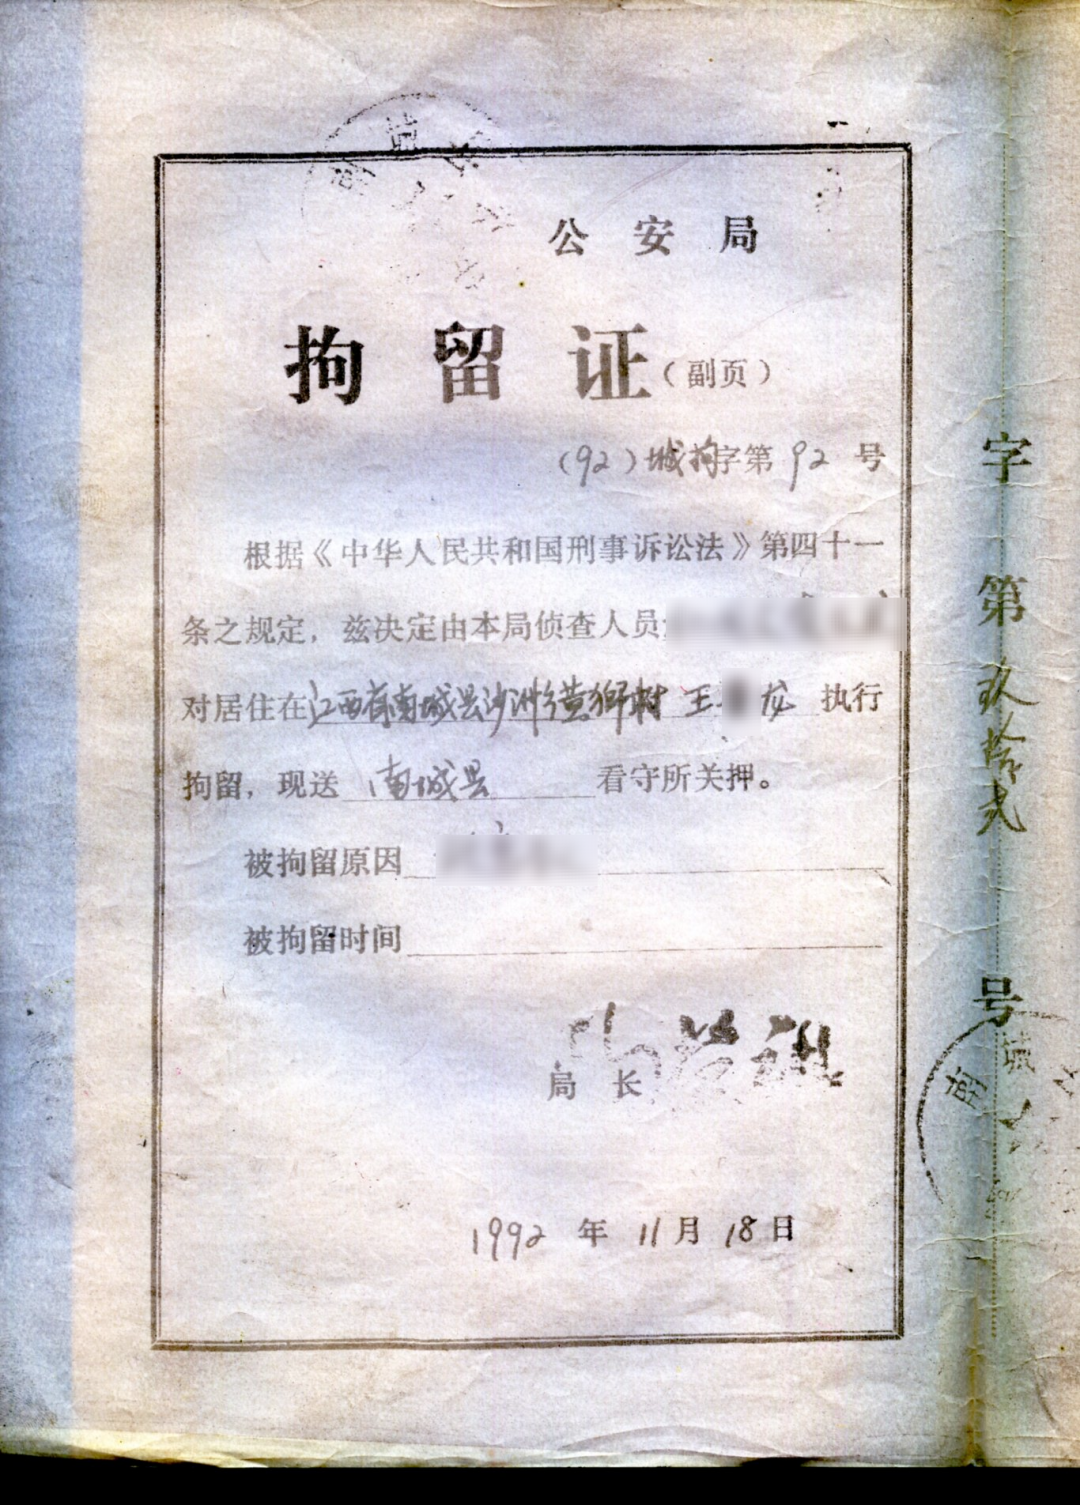 南城县
公安局
拘留证(副页)
(92)城拘字第92号
根据《中华人民共和国刑事诉讼法》第四十一
条之规定,兹决定由本局侦查人员
对居住在江西省南城县沙洲乡黄狮村 王 龙 执行
拘留,现送 南城县 看守所关押。
被拘留原因
被拘留时间
局 长
1992年11月18日
字第玖拾贰号
南城